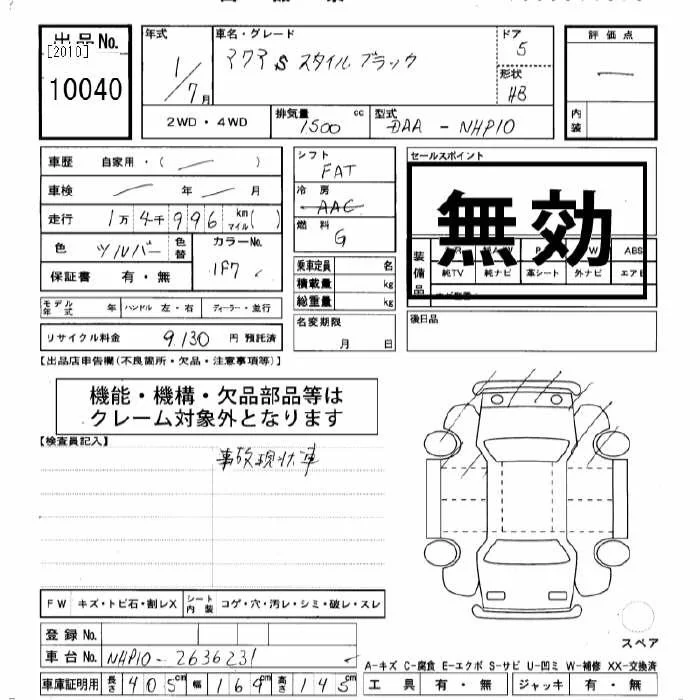 出品No.
[2010]
10040
年式
1/7月
車名・グレード
アクア S スタイルブラック
ドア
5
形状
HB
評価点
内装
2WD・4WD
排気量 1500 cc
型式 DAA-NHP10
車歴 自家用・( )
車検 年 月
走行 1万4千996 km マイル( )
色 シルバー 色替 カラーNo. 1F7
保証書 有・無
モデル年式 年 ハンドル 左・右 ディーラー・並行
リサイクル料金 9,130 円 預託済
シフト
FAT
冷房
AAC
燃料
G
乗車定員 名
積載量 kg
総重量 kg
名変期限
月 日
セールスポイント
無効
装備品
ABS
純TV 純ナビ 革シート 外ナビ エアB
後日品
【出品店申告欄(不良箇所・欠品・注意事項等)】
機能・機構・欠品部品等は
クレーム対象外となります
【検査員記入】
事故現状車
FW キズ・トビ石・割レX シート内装 コゲ・穴・汚レ・シミ・破レ・スレ
登録No.
車台No. NHP10-2636231
車庫証明用 長さ 405cm 幅 169cm 高さ 145cm
スペア
A-キズ C-腐食 E-エクボ S-サビ U-凹ミ W-補修 XX-交換済
工具 有・無 ジャッキ 有・無